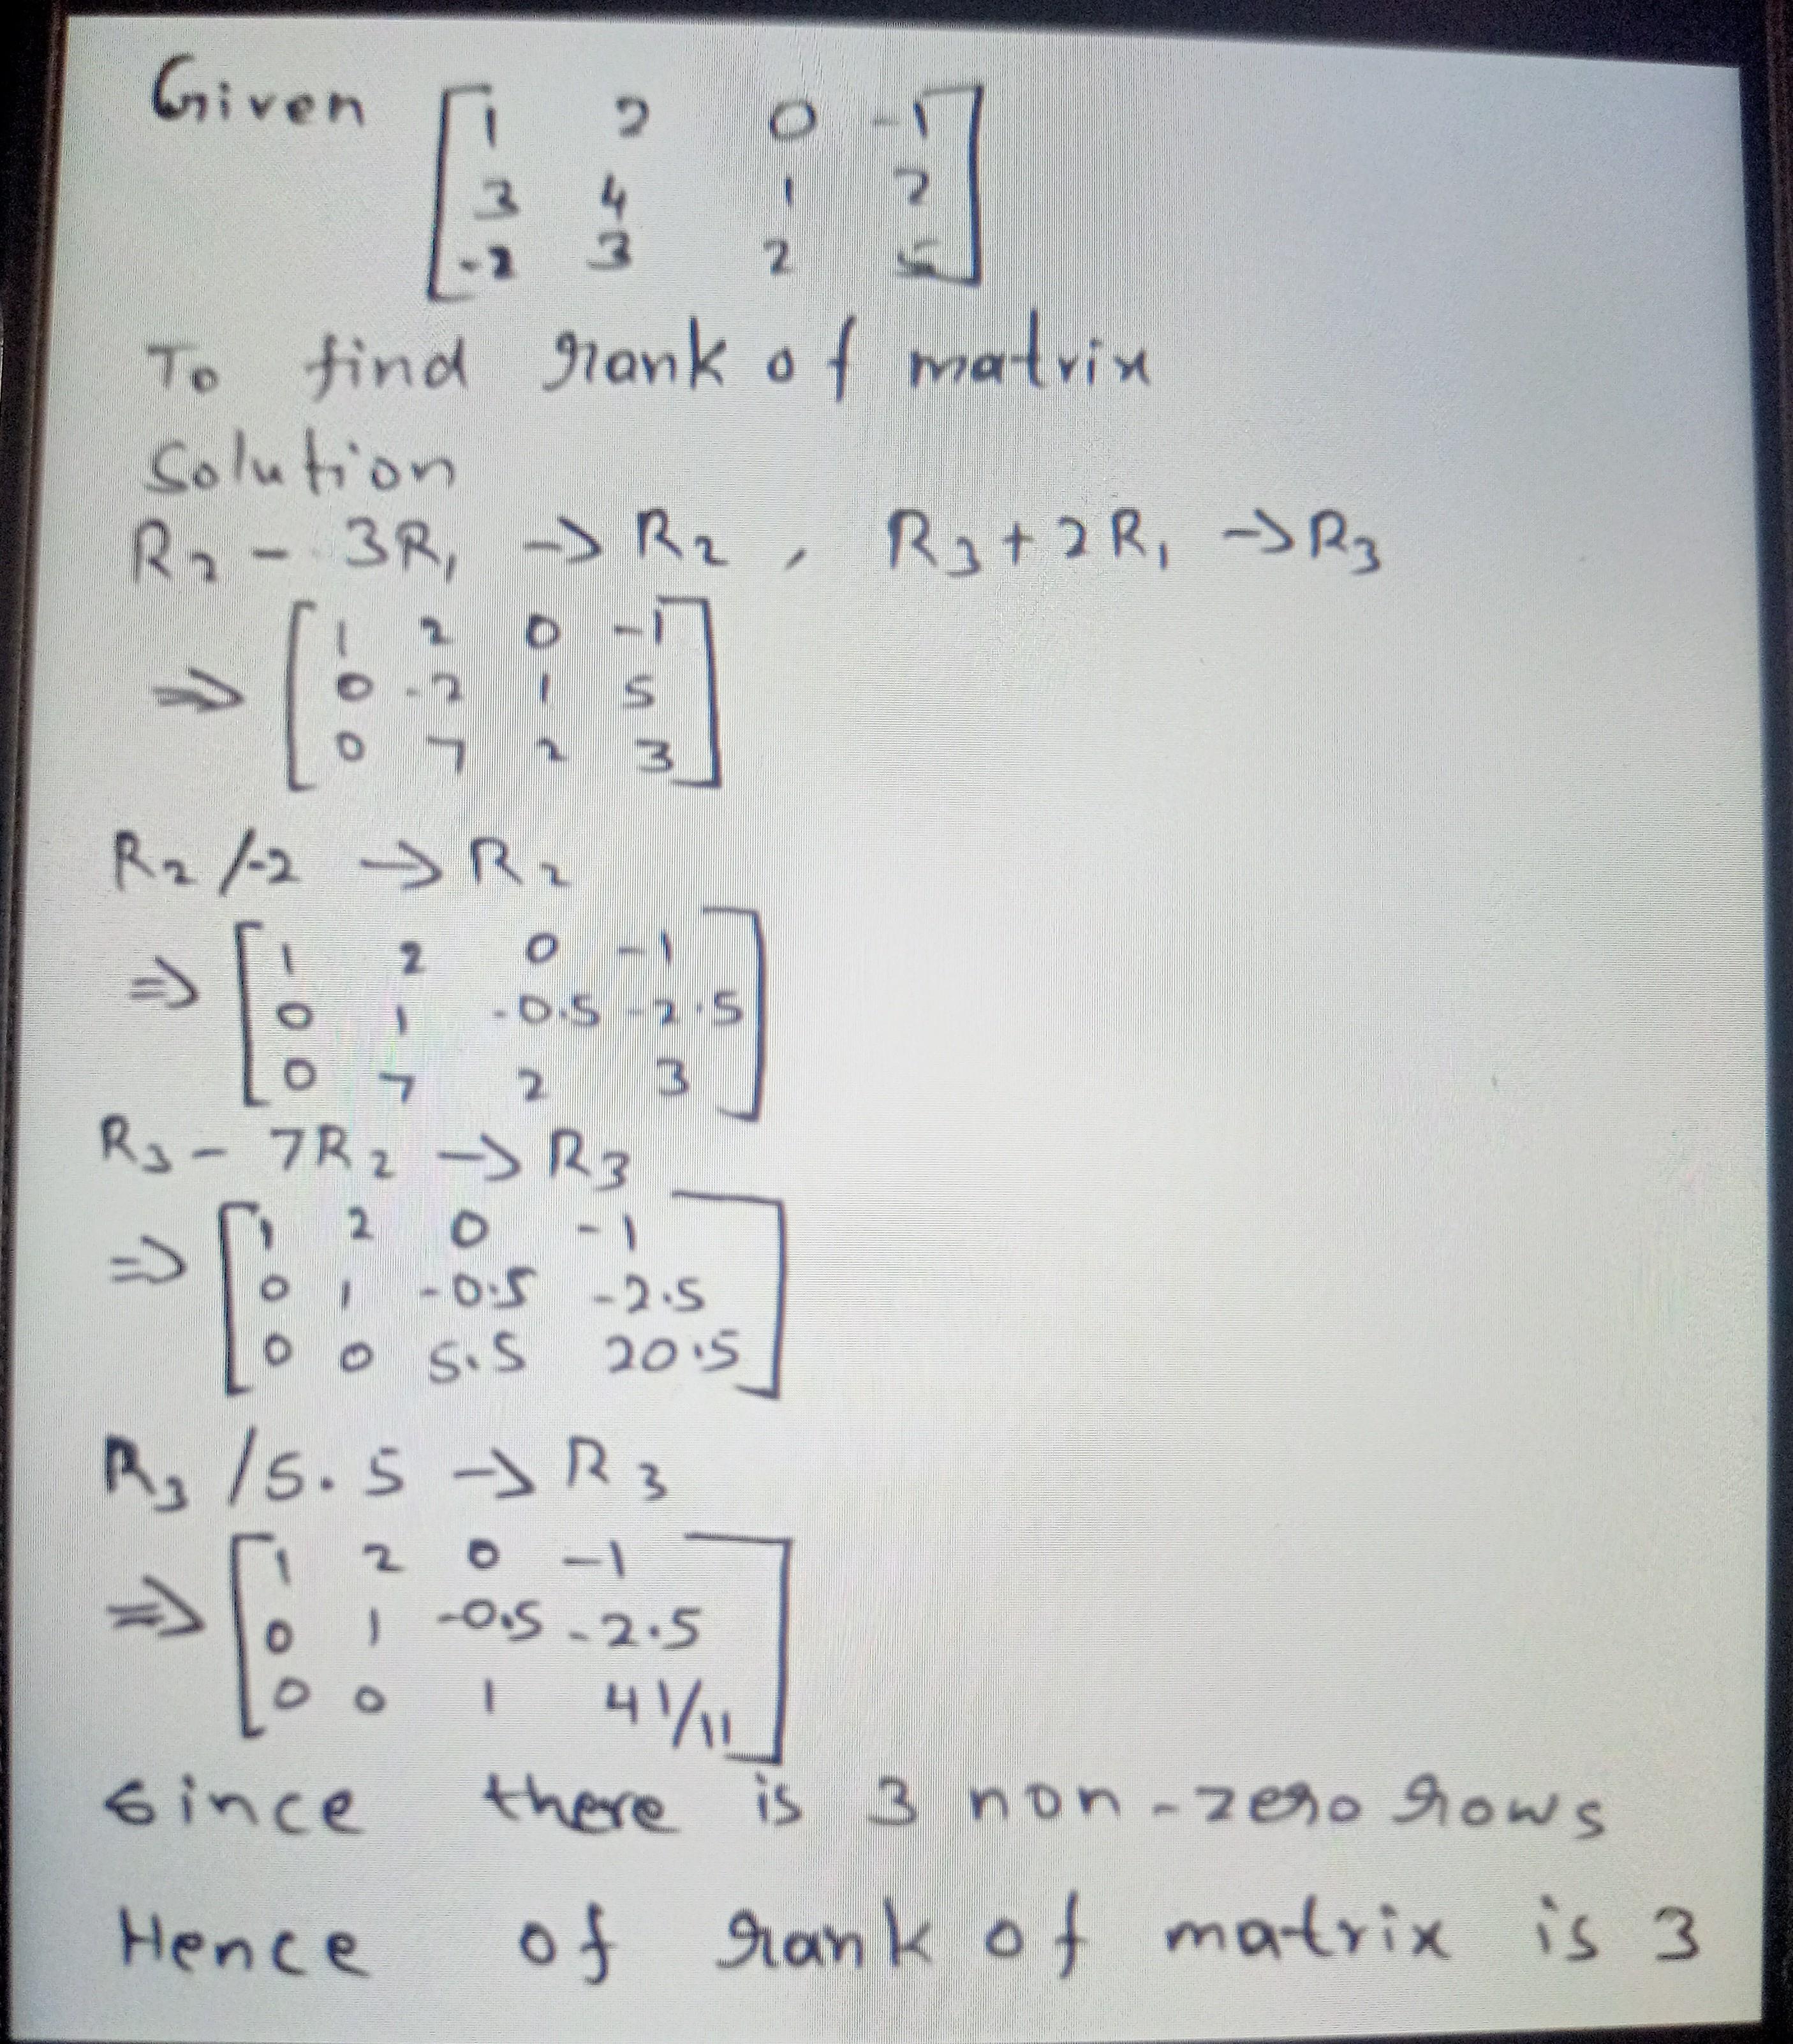 Given [1 2 0 -1
3 4 1 2
-2 3 2 5]
To find rank of matrix
Solution
R2 - 3R1 -> R2 , R3 + 2R1 -> R3
=> [1 2 0 -1
0 -2 1 5
0 7 2 3]
R2 /-2 -> R2
=> [1 2 0 -1
0 1 -0.5 -2.5
0 7 2 3]
R3 - 7R2 -> R3
=> [1 2 0 -1
0 1 -0.5 -2.5
0 0 5.5 20.5]
R3 /5.5 -> R3
=> [1 2 0 -1
0 1 -0.5 -2.5
0 0 1 41/11]
Since there is 3 non-zero rows
Hence of rank of matrix is 3